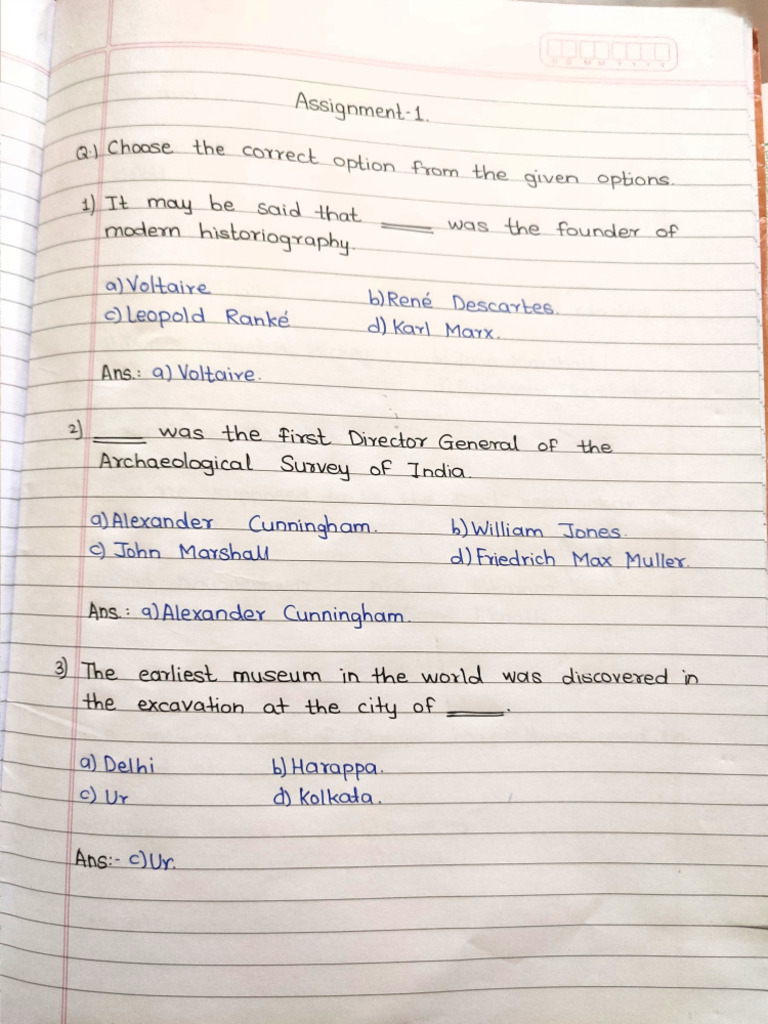 D D M M Y Y Y Y
Assignment-1.
Q.1 Choose the correct option from the given options.
1) It may be said that ____ was the founder of
modern historiography.
a) Voltaire b) René Descartes.
c) Leopold Ranké d) Karl Marx.
Ans.: a) Voltaire.
2) ____ was the first Director General of the
Archaeological Survey of India.
a) Alexander Cunningham. b) William Jones.
c) John Marshall d) Friedrich Max Muller.
Ans.: a) Alexander Cunningham.
3) The earliest museum in the world was discovered in
the excavation at the city of ____.
a) Delhi b) Harappa.
c) Ur d) Kolkata.
Ans:- c) Ur.